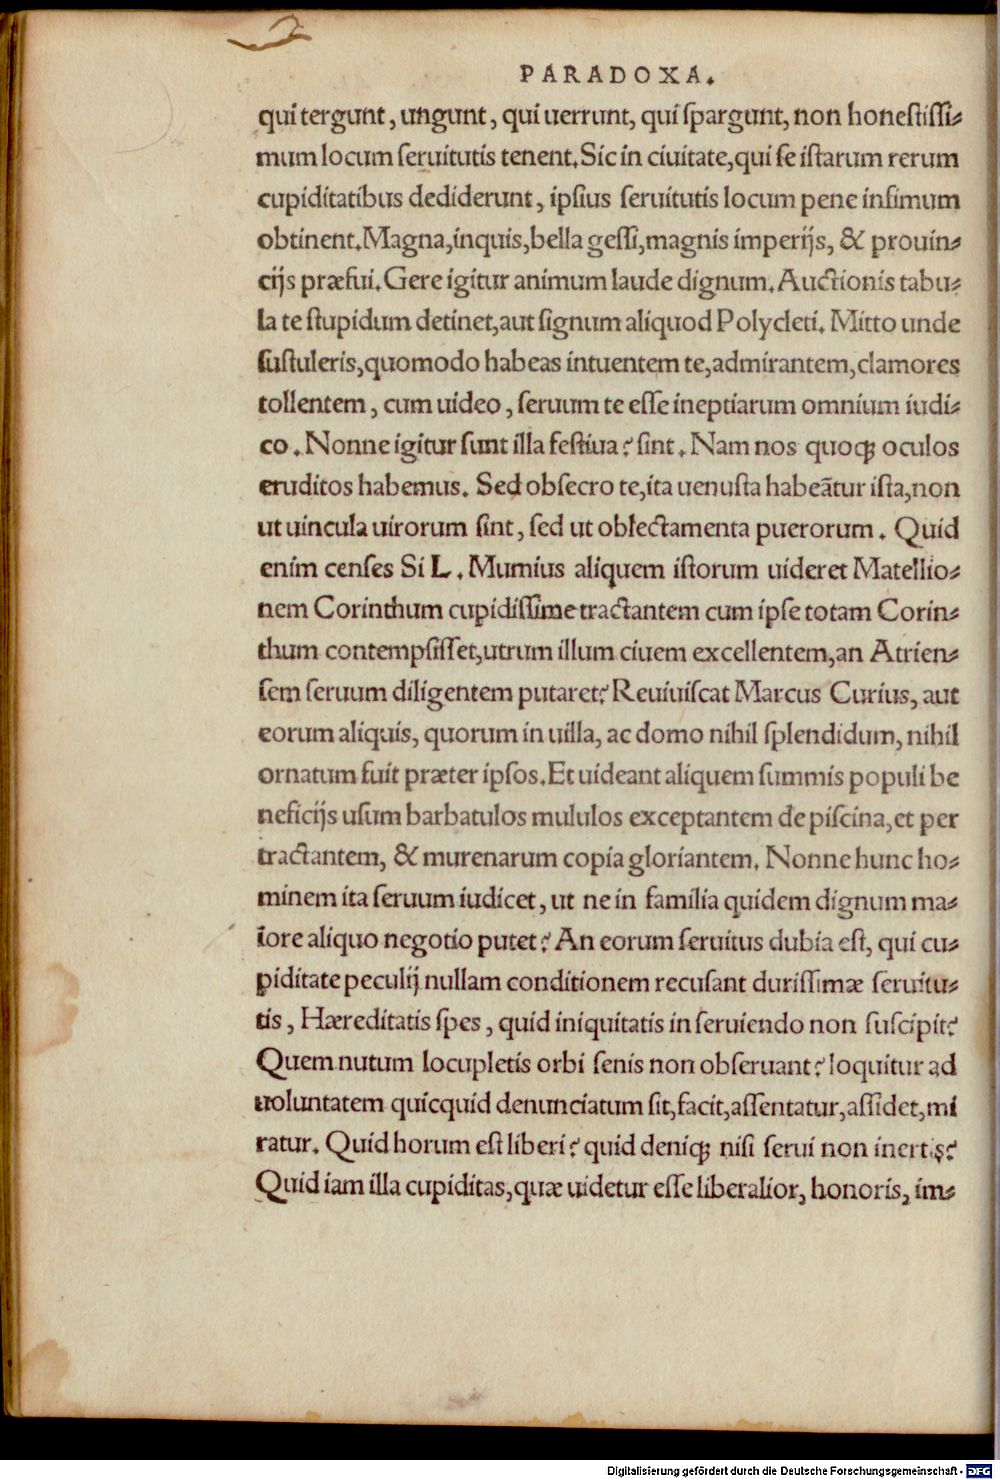 PARADOXA.
qui tergunt, ungunt, qui uerrunt, qui ſpargunt, non honeſtiſſi-
mum locum ſeruitutis tenent. Sic in ciuitate, qui ſe iſtarum rerum
cupiditatibus dediderunt, ipſius ſeruitutis locum pene infimum
obtinent. Magna, inquis, bella geſſi, magnis imperijs, & prouin-
cijs præfui. Gere igitur animum laude dignum. Auctionis tabu-
la te ſtupidum detinet, aut ſignum aliquod Polycleti. Mitto unde
ſuſtuleris, quomodo habeas intuentem te, admirantem, clamores
tollentem, cum uideo, ſeruum te eſſe ineptiarum omnium iudi-
co. Nonne igitur ſunt illa feſtiua? ſint. Nam nos quoqꝫ oculos
eruditos habemus. Sed obſecro te, ita uenuſta habeãtur iſta, non
ut uincula uirorum ſint, ſed ut oblectamenta puerorum. Quid
enim cenſes Si L. Mumius aliquem iſtorum uideret Matellio-
nem Corinthum cupidiſſime tractantem cum ipſe totam Corin-
thum contempſiſſet, utrum illum ciuem excellentem, an Atrien-
ſem ſeruum diligentem putaret? Reuiuiſcat Marcus Curius, aut
eorum aliquis, quorum in uilla, ac domo nihil ſplendidum, nihil
ornatum fuit præter ipſos. Et uideant aliquem ſummis populi be
neficijs uſum barbatulos mululos exceptantem de piſcina, et per
tractantem, & murenarum copia gloriantem. Nonne hunc ho-
minem ita ſeruum iudicet, ut ne in familia quidem dignum ma-
iore aliquo negotio putet? An eorum ſeruitus dubia eſt, qui cu-
piditate peculij nullam conditionem recuſant duriſſimæ ſeruitu-
tis, Hæreditatis ſpes, quid iniquitatis in ſeruiendo non ſuſcipit?
Quem nutum locupletis orbi ſenis non obſeruant? loquitur ad
uoluntatem quicquid denunciatum ſit, facit, aſſentatur, aſſidet, mi
ratur. Quid horum eſt liberi? quid deniqꝫ niſi ſerui non inertis?
Quid iam illa cupiditas, quæ uidetur eſſe liberalior, honoris, im-
Digitalisierung gefördert durch die Deutsche Forschungsgemeinschaft - DFG